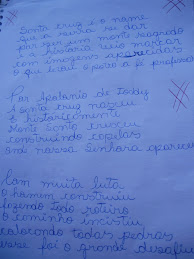 Santa cruz é o nome
que a serra se dar
por ser um monte sagrado
e a história veio marcar
com imagens aparecidas
o que levou o povo a fé professar

Por Apolonio de Tody
A santa cruz nasceu
E historicamente
Monte Santo cresceu
construindo capelas
onde nossa senhora apareceu

Com muita luta
o homem construiu
fazendo todo roteiro
o caminho
colocando todas pedras
esse foi o grande desafio